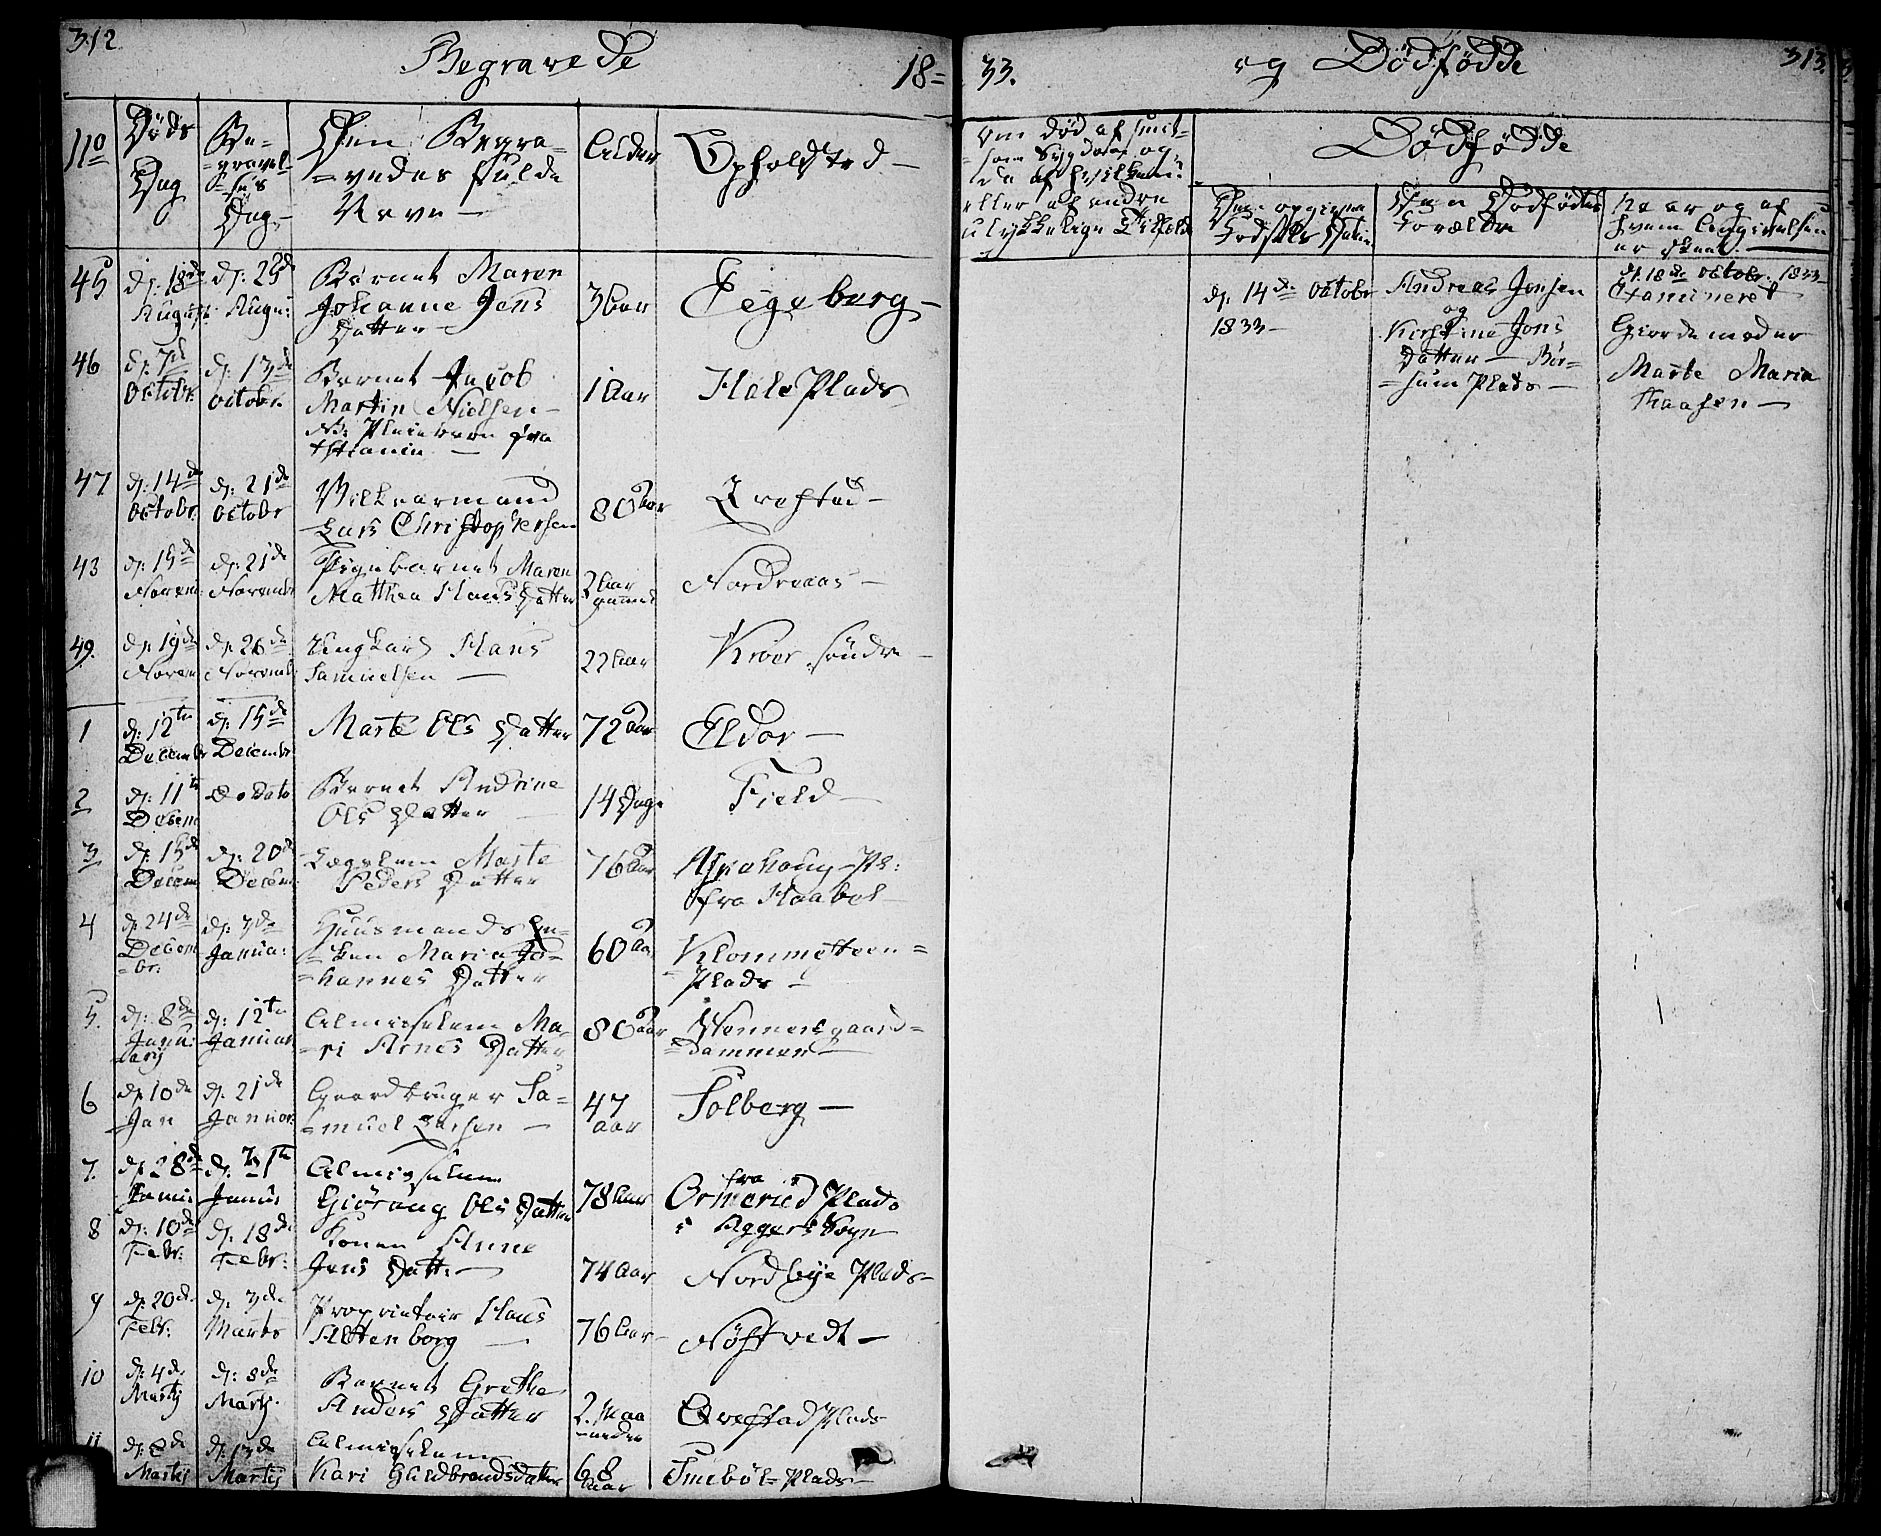 312
Begravede
18=
No
Døds
Dag
Be=
=gravel=
=se's
Dag
Den Begra=
=vedes fulde
Navn
Alder
Opholdsted
45
d: 18de
August
d: 25de
Augu:
Barnet Maren
Johanne Jens
Datter
3 Aar
Egeberg
46
d: 7de
Octobr.
d: 13de
octobr.
Barnet Jacob
Martin Nielsen
NB: Pleiebarn fra
1 Aar
Hale Plads
47
d: 14de
Octobr.
d: 21de
octobr
Vilkaarmand
Lars Christophersen
80 Aar
48
d: 15de
Novem:
d: 21de
Novembr
Pigebarnet Maren
Mathea Hans Datter
2 Aar
gammel
Nordraas
49.
d: 19de
Novem
d: 26de
Novemb
Ungkarl Hans
Samuelsen
22 Aar
Kroer søndre
1
d: 12te
Decembr
d: 15de
Decembr
Marte Ols Datter
72 Aar
Eldor
2
d: 11te
Decem
do Dato
Barnet Andrine
Ols Datter
14 Dage
Field
3
d: 15de
Decem
d: 20de
Decem:
Lægslem Marte
Peders Datter
76 Aar
Aspehoug Pl:
fra Haabøl
4
d: 24de
Decem
=br:
d: 3de
Janua:
Huusmands En=
=ken Maria Jo=
=hannes Datter
60 Aar
Klommesteen=
=Plads
5.
d: 8de
Janu:
=arij
d: 12te
Januar
Almisselem Ma=
=ri Arnes Datter
80 Aar
Wennersgaard=
=dammen
6
d: 10de
Jan
d: 21de
Januar:
Gaardbruger Sa=
=muel Larsen
47
aar
Solberg
7.
d: 28de
Janu:
d: 31te
Janua
Almisselem
Giørang Ols Datter
78 Aar
fra
Ormerud Plads
i Aggers Sogn
8
d: 10de
Febr.
d: 18de
Febr:
Konen Anne
Jens Datter
74 Aar
Nordbye Plads
9
d: 20de
Febr.
d: 3de
Marts
Proprietair Hans
Altenborg
76 Aar
Nøstvedt
10
d: 4de
Martij
d: 8de
Martij.
Barnet Grethe
Anders Datter
2. Maa
=neder
Qvestad Plads
11
d: 8de
Martij
d: 13de
Martij
Almisselem
Kari Guldbrandsdatter
68
Aar
Smebøl=Plads
33.
og Dødfødde
313.
Om død af smit=
=som Sygdom og
da af hvilken:
eller af andre
ulykkelige Tilfælde
Dødfødde
Den opgivne
Fødsels Datum
Den Dødfødtes
Forældre
Naar og af
hvem Angivelsen
er skeet.
d: 14de octobr
1833
Andreas Jensen
og
Kirstine Jons
Datter Bør=
=sum Plads
d: 18de octobr. 1833
Examineret
Giordemoder
Marte Maria
Kaasen